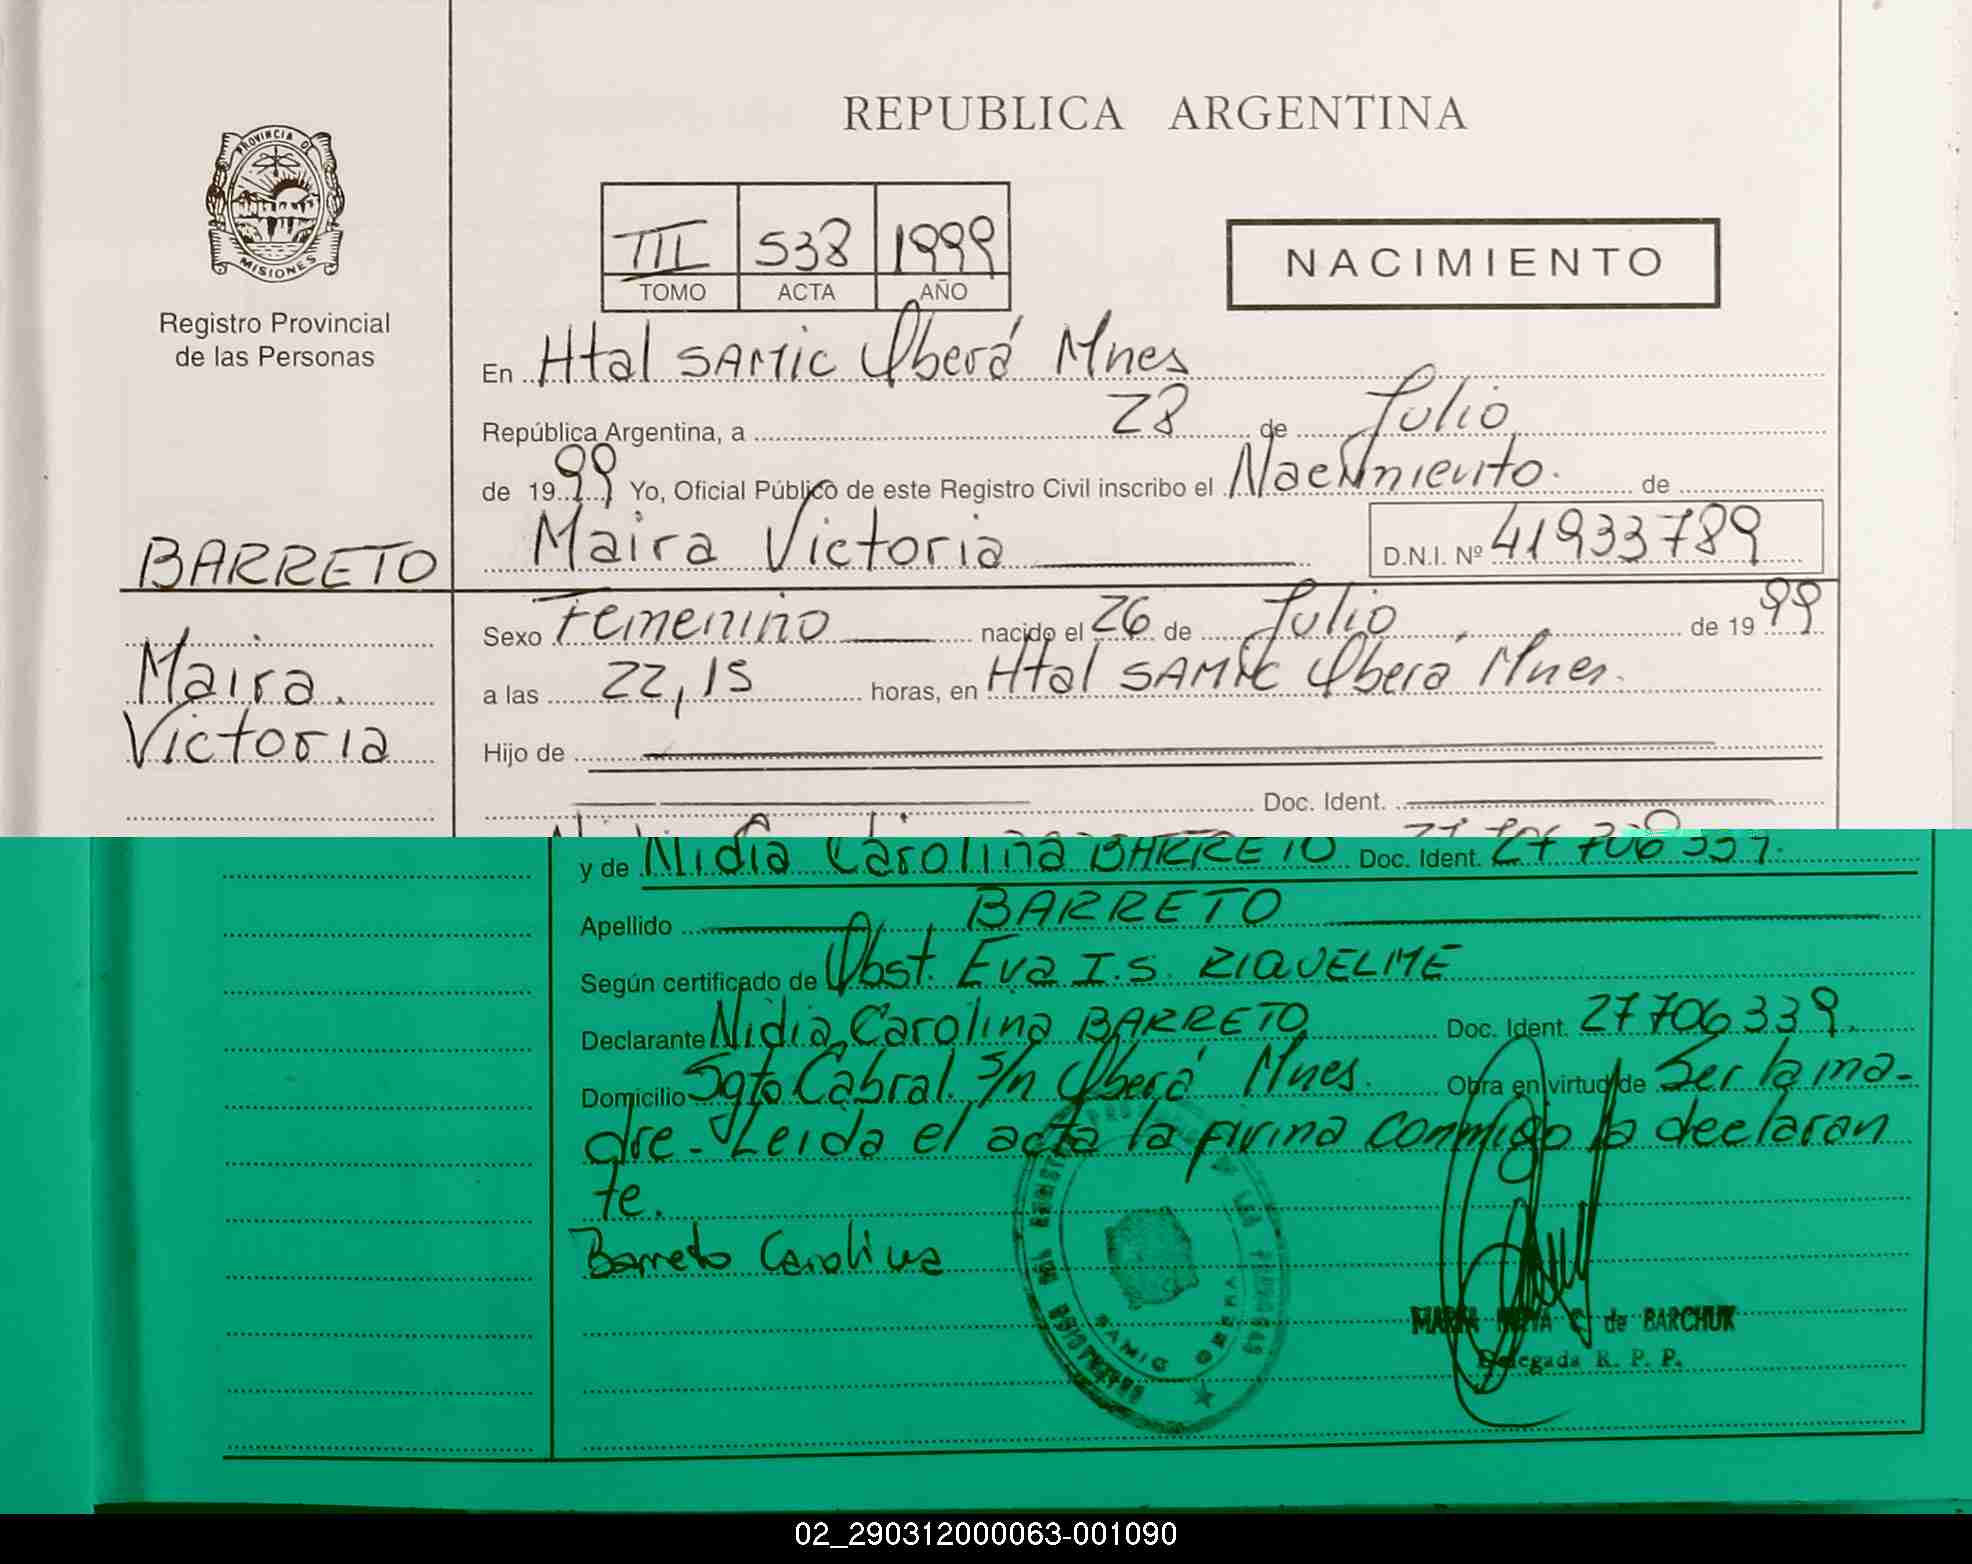 REPUBLICA ARGENTINA
PROVINCIA DE
MISIONES
Registro Provincial
de las Personas
III 538 1999
TOMO ACTA AÑO
NACIMIENTO
En Htal SAMIC Oberá Mnes
República Argentina, a 28 de Julio
de 1999 Yo, Oficial Público de este Registro Civil inscribo el Nacimiento. de
Maira Victoria D.N.I. Nº 41933789
BARRETO
Maira
Victoria
Sexo Femenino nacido el 26 de Julio de 1999
a las 22,15 horas, en Htal SAMIC Oberá Mnes.
Hijo de
Doc. Ident.
y de Nidia Carolina BARRETO Doc. Ident. 27 706 339.
Apellido BARRETO
Según certificado de Obst. Eva I.S. RIQUELME
Declarante Nidia Carolina BARRETO Doc. Ident. 27706339.
Domicilio Sgto Cabral s/n Oberá Mnes. Obra en virtud de Ser la ma-
dre - Leida el acta la firma conmigo la declaran
te.
Barreto Carolina
SAMIC OBERA
MARIA C. de BARCHUK
Delegada R. P. P.
02_290312000063-001090